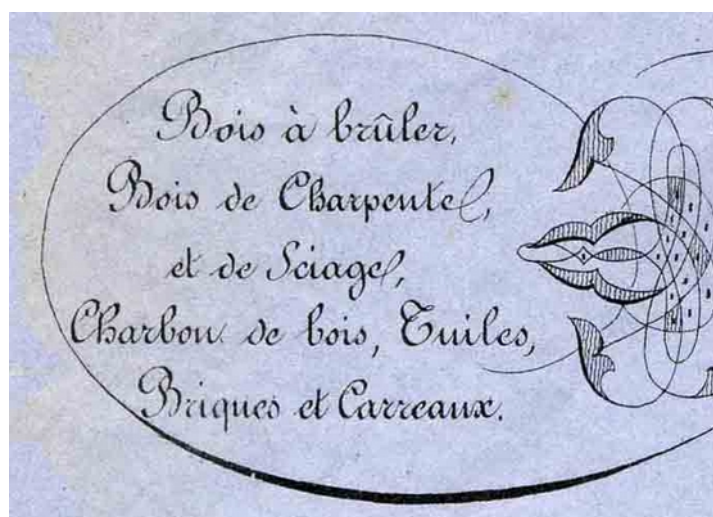 Bois à brûler,
Bois de Charpente,
et de Sciage,
Charbon de bois, Tuiles,
Briques et Carreaux.